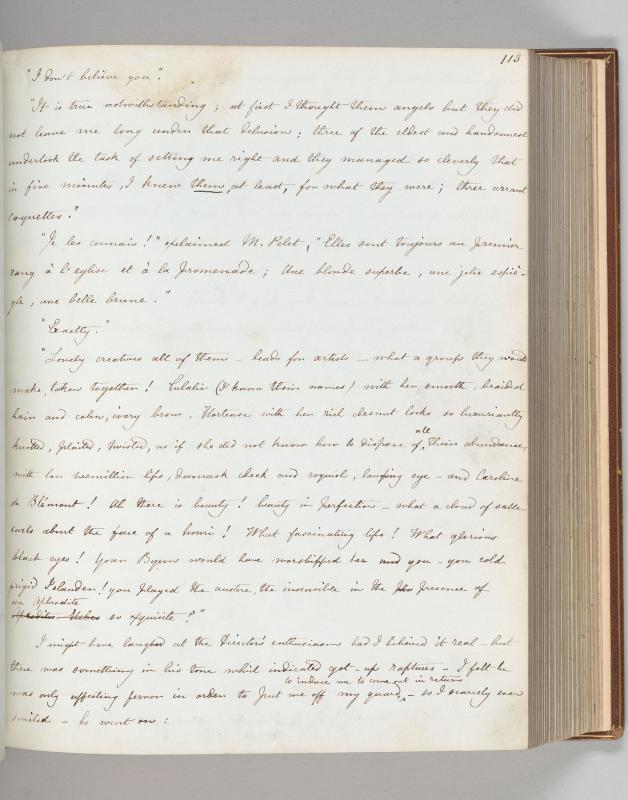 113
"I don't believe you".
"It is true notwithstanding; at first I thought them angels but they did
not leave me long under that delusion; three of the eldest and handsomest
undertook the task of setting me right and they managed so cleverly that
in five minutes, I knew them, at least, for what they were; three arrant
coquettes."
"Je les connais!" exclaimed M. Pelet, "Elles sont toujours au premier
rang à l'eglise et à la promenade; Une blonde superbe, une jolie espiè-
gle, une belle brune."
"Exactly."
"Lovely creatures all of them – heads for artists – what a group they would
make, taken together! Eulalie (I know their names) with her smooth, braided
hair and calm, ivory brow, Hortense with her rich chesnut locks so luxuriantly
knotted, plaited, twisted, as if she did not know how to dispose of all their abundance,
with her vermillion lips, damask cheek and roguish, laughing eye – and Caroline
de Blémont! Ah there is beauty! beauty in perfection – what a cloud of sable
curls about the face of a houri! What fascinating lips! What glorious
black eyes! Your Byron would have worshipped her and you – you cold
frigid Islander! you played the austere, the insensible in the presence of
an Aphrodite
so exquisite?"
I might have laughed at the Director's enthusiasm had I believed it real – but
there was something in his tone which indicated got-up raptures – I felt he
to induce me to come out in return
was only affecting fervor in order to put me off my guard, – so I scarcely even
smiled – he went on: